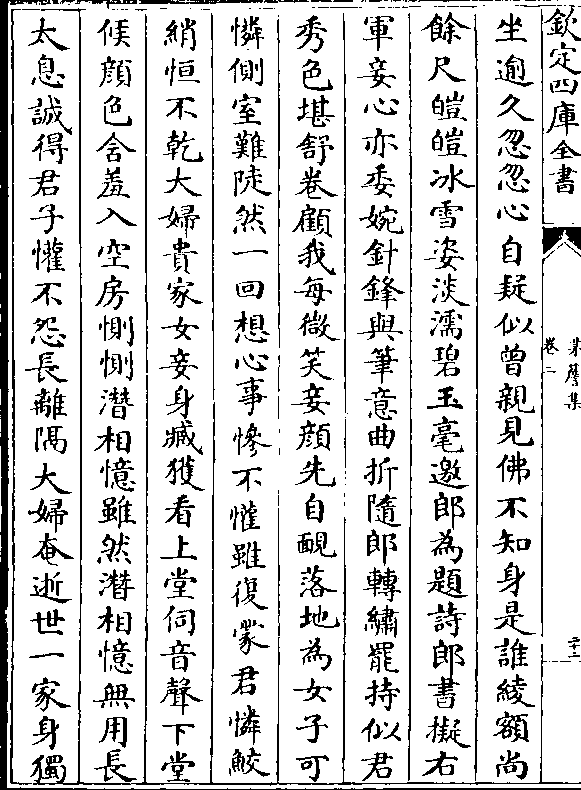 欽定四庫全書
卷二
坐逾久忽忽心自疑似曾親見佛不知身是誰綾額尚
餘尺皚皚冰雪姿淡濡碧玉毫邀郎為題詩郎書擬右
軍妾心亦委婉針鋒與筆意曲折隨郎轉繡罷持似君
秀色堪舒卷顧我每微笑妾顏先自靦落地為女子可
憐側室難陡然一回想心事慘不懽雖復蒙君憐鮫
綃恒不乾大婦貴家女妾身臧獲看上堂伺音聲下堂
候顏色含羞入空房惻惻潛相憶雖然潛相憶無用長
太息誠得君子懽不怨長離隔大婦奄逝世一家身獨